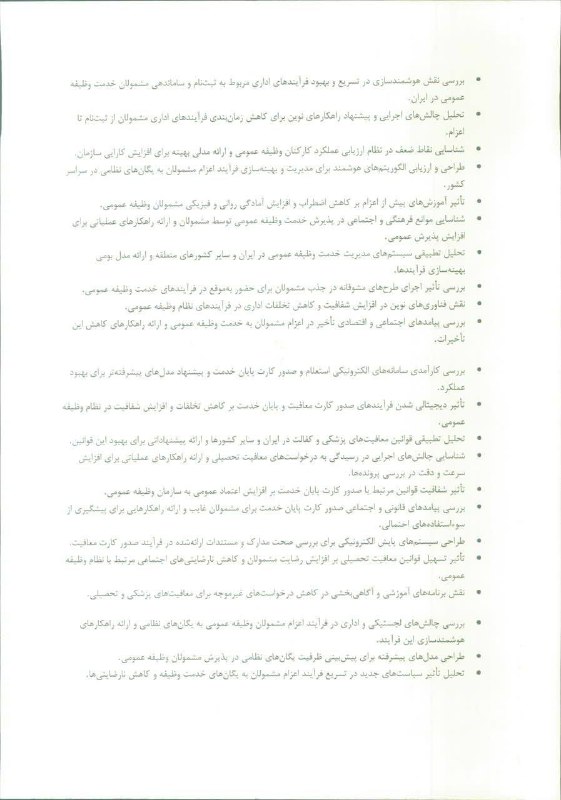 • بررسی نقش هوشمندسازی در تسریع و بهبود فرآیندهای اداری مربوط به ثبت‌نام و ساماندهی مشمولان خدمت وظیفه
عمومی در ایران.
• تحلیل چالش‌های اجرایی و پیشنهاد راهکارهای نوین برای کاهش زمان‌بندی فرآیندهای اداری مشمولان از ثبت‌نام تا
اعزام.
• شناسایی نقاط ضعف در نظام ارزیابی عملکرد کارکنان وظیفه عمومی و ارائه مدلی بهینه برای افزایش کارایی سازمان.
• طراحی و ارزیابی الگوریتم‌های هوشمند برای مدیریت و بهینه‌سازی فرآیند اعزام مشمولان به یگان‌های نظامی در سراسر
کشور.
• تأثیر آموزش‌های پیش از اعزام بر کاهش اضطراب و افزایش آمادگی روانی و فیزیکی مشمولان وظیفه عمومی.
• شناسایی موانع فرهنگی و اجتماعی در پذیرش خدمت وظیفه عمومی توسط مشمولان و ارائه راهکارهای عملیاتی برای
افزایش پذیرش عمومی.
• تحلیل تطبیقی سیستم‌های مدیریت خدمت وظیفه عمومی در ایران و سایر کشورهای منطقه و ارائه مدل بومی
بهینه‌سازی فرآیندها.
• بررسی تأثیر اجرای طرح‌های مشوقانه در جذب مشمولان برای حضور به‌موقع در فرآیندهای خدمت وظیفه عمومی.
• نقش فناوری‌های نوین در افزایش شفافیت و کاهش تخلفات اداری در فرآیندهای نظام وظیفه عمومی.
• بررسی پیامدهای اجتماعی و اقتصادی تأخیر در اعزام مشمولان به خدمت وظیفه عمومی و ارائه راهکارهای کاهش این
تأخیرات.
• بررسی کارآمدی سامانه‌های الکترونیکی استعلام و صدور کارت پایان خدمت و پیشنهاد مدل‌های پیشرفته‌تر برای بهبود
عملکرد.
• تأثیر دیجیتالی شدن فرآیندهای صدور کارت معافیت و پایان خدمت بر کاهش تخلفات و افزایش شفافیت در نظام وظیفه
عمومی.
• تحلیل تطبیقی قوانین معافیت‌های پزشکی و کفالت در ایران و سایر کشورها و ارائه پیشنهاداتی برای بهبود این قوانین.
• شناسایی چالش‌های اجرایی در رسیدگی به درخواست‌های معافیت تحصیلی و ارائه راهکارهای عملیاتی برای افزایش
سرعت و دقت در بررسی پرونده‌ها.
• تأثیر شفافیت قوانین مرتبط با صدور کارت پایان خدمت بر افزایش اعتماد عمومی به سازمان وظیفه عمومی.
• بررسی پیامدهای قانونی و اجتماعی صدور کارت پایان خدمت برای مشمولان غایب و ارائه راهکارهایی برای پیشگیری از
سوءاستفاده‌های احتمالی.
• طراحی سیستم‌های پایش الکترونیکی برای بررسی صحت مدارک و مستندات ارائه‌شده در فرآیند صدور کارت معافیت.
• تأثیر تسهیل قوانین معافیت تحصیلی بر افزایش رضایت مشمولان و کاهش نارضایتی‌های اجتماعی مرتبط با نظام وظیفه
عمومی.
• نقش برنامه‌های آموزشی و آگاهی‌بخشی در کاهش درخواست‌های غیرموجه برای معافیت‌های پزشکی و تحصیلی.
• بررسی چالش‌های لجستیکی و اداری در فرآیند اعزام مشمولان وظیفه عمومی به یگان‌های نظامی و ارائه راهکارهای
هوشمندسازی این فرآیند.
• طراحی مدل‌های پیشرفته برای پیش‌بینی ظرفیت یگان‌های نظامی در پذیرش مشمولان وظیفه عمومی.
• تحلیل تأثیر سیاست‌های جدید در تسریع فرآیند اعزام مشمولان به یگان‌های خدمت وظیفه و کاهش نارضایتی‌ها.